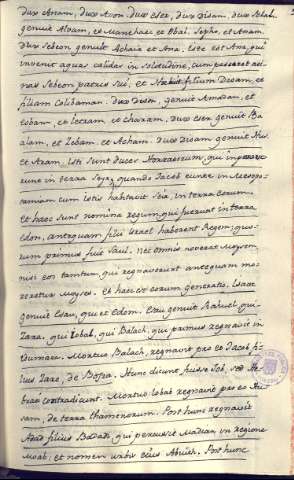 dux Anam, dux Acon. dux esee, dux Disam, dux Sobal
genuit Alvam, et Manehac et Obal. Sepho, et Anam
dux Sebeon genuit Achaia et Ana, iste est Ana, qui
invenit aquas calidas in solitudine, cum pasceret asi-
nas Sebeon patris sui, et habuit filium Disam, et
filiam Colibaman. dux disen, genuit Amadam, et
esbam, et Letram, et Charam, dux esen genuit Ba
alam, et Zebam, et Acham. dux Disam genuit Hus
et Aram. Isti sunt duces Horræorum, qui
in terra Seyr quando Jacob
tamiam cum istis habitavit in terra eorum.
et hæc sunt nomina regum, qui fuerunt in terra
Edon, antequam filii Israel haberent Regem; quo-
rum primus fuit Saul. nec omnis noverat Moysen,
nisi eos tantum, qui regnaverunt antequam mo-
reretur Moyses. Et hæc est eorum generatio. Isaac
genuit Esau, qui et Edom. Esau genuit Rahuel qui
Zara, qui Iobab, qui Balach, qui primus regnavit in
Idumaea. Mortuo Balach, regnavit pro eo Jacob fi-
lius Zare, de Bosra. Hunc dicunt, fuisse Job, sed He-
braei contradicunt. Mortuo Iobab regnavit pro eo Hu
sam, de terra thamonorum. Post hunc regnavit
Adad filius Badadi, qui percussit Madian in regione
Moab; et nomen urbis eius Abuith. Post hunc